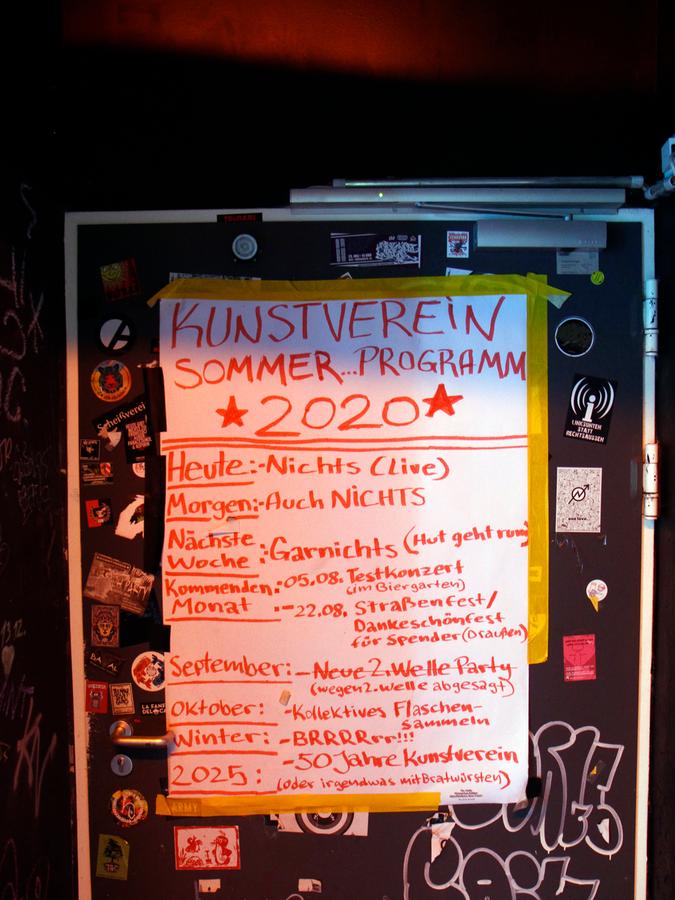 KUNSTVEREIN
SOMMER...PROGRAMM
★2020★
Heute:-Nichts (Live)
Morgen:-Auch NICHTS
Nächste Woche :Garnichts (Hut geht rum)
Kommenden Monat :-05.08. Testkonzert
(im Biergarten)
-22.08. Straßenfest/
Dankeschönfest
für Spender (Draußen)
September: -Neue 2. Welle Party
(wegen 2. Welle abgesagt)
Oktober: -Kollektives Flaschen-
sammeln
Winter: -BRRRRrr!!!
2025: -50 Jahre Kunstverein
(oder irgendwas mit Bratwürsten)
Scheißverein
LINKSUNTEN
STATT
RECHTSAUSSEN
ARMY